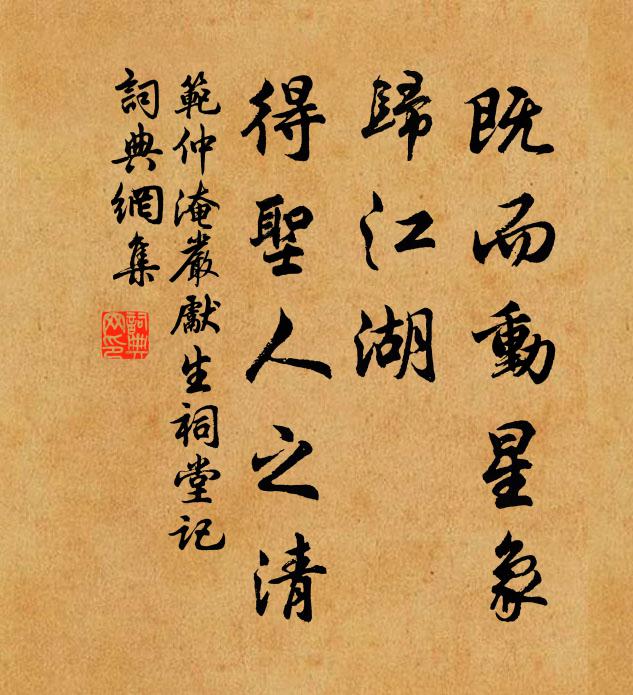 既而動星象
歸江湖
得聖人之清
範仲淹嚴獻生祠堂記
詞典網集
詞典網印